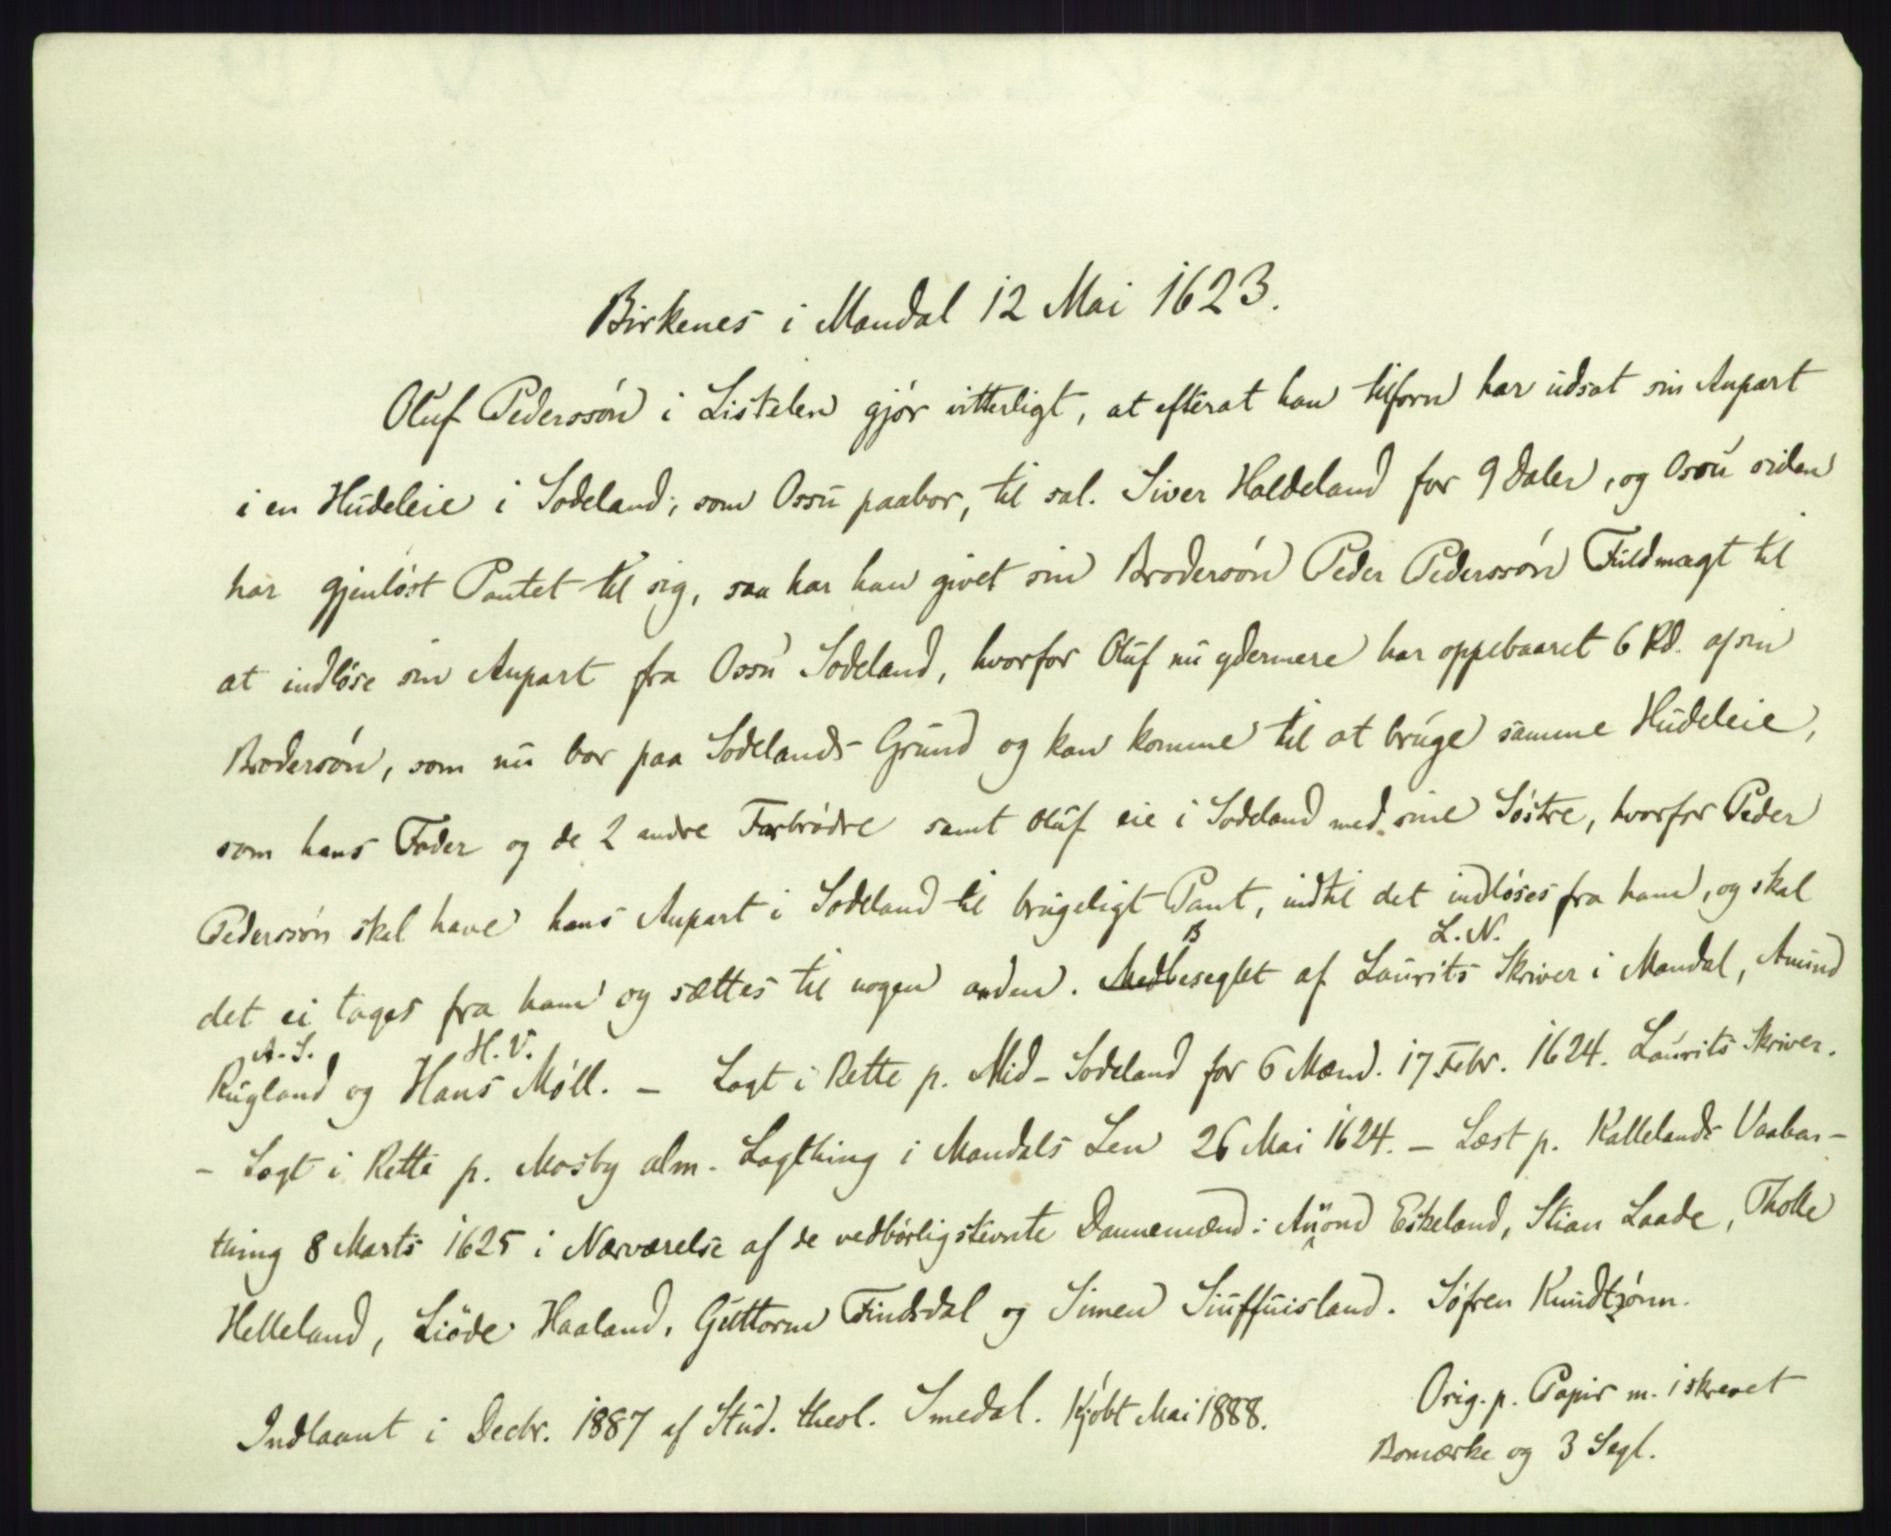 Birkenes i Mandal 12 Mai 1623.
Oluf Pederssön i Listelen gjör vitterligt, at efterat han tilforn har udsat sin Anpart
i en Hudeleie i Sodeland, som Ossu paabor, til sal. Siver Haldeland for 9 Daler, og Ossu siden
har gjenlöst Pantet til sig, saa har han givet sin Brodersön Peder Pederssön Fuldmagt til
at indlöse sin Anpart fra Ossu Sodeland, hvorfor Oluf nu ydermere har oppebaaret 6 Rd. af sin
Brodersön, som nu bor paa Sodelands Grund og kan komme til at bruge samme Hudeleie,
som hans Fader og de 2 andre Farbrödre samt Oluf eie i Sodeland med sine Söstre, hvorfor Peder
Pederssön skal have hans Anpart i Sodeland til brugeligt Pant, indtil det indlöses fra ham, og skal
det ei tages fra ham og sættes til nogen anden. Medbeseglet af Laurits Skriver i Mandal, Amund
B L. N.
Rugland og Hans Möll. – Lagt i Rette p. Mid-Sodeland for 6 Mænd. 17 Febr. 1624. Laurits Skriver.
A. S. H. V.
– Lagt i Rette p. Mosby alm. Lagthing i Mandals Len 26 Mai 1624. – Læst p. Kallelands Vaabenthing
8 Marts 1625 i Nærværelse af de vedbörlig stevnte Dannemænd: Auond Eskeland, Stian Laade, Tholle
Helleland, Liöde Haaland, Guttorm Findsdal og Simen Siuffuisland. Söfren Knudtzönn.
Indlaant i Decbr. 1887 af Stud. theol. Smedal. Kjöbt Mai 1888.
Orig. p. Papir m. i skrevet
Bomærke og 3 Segl.